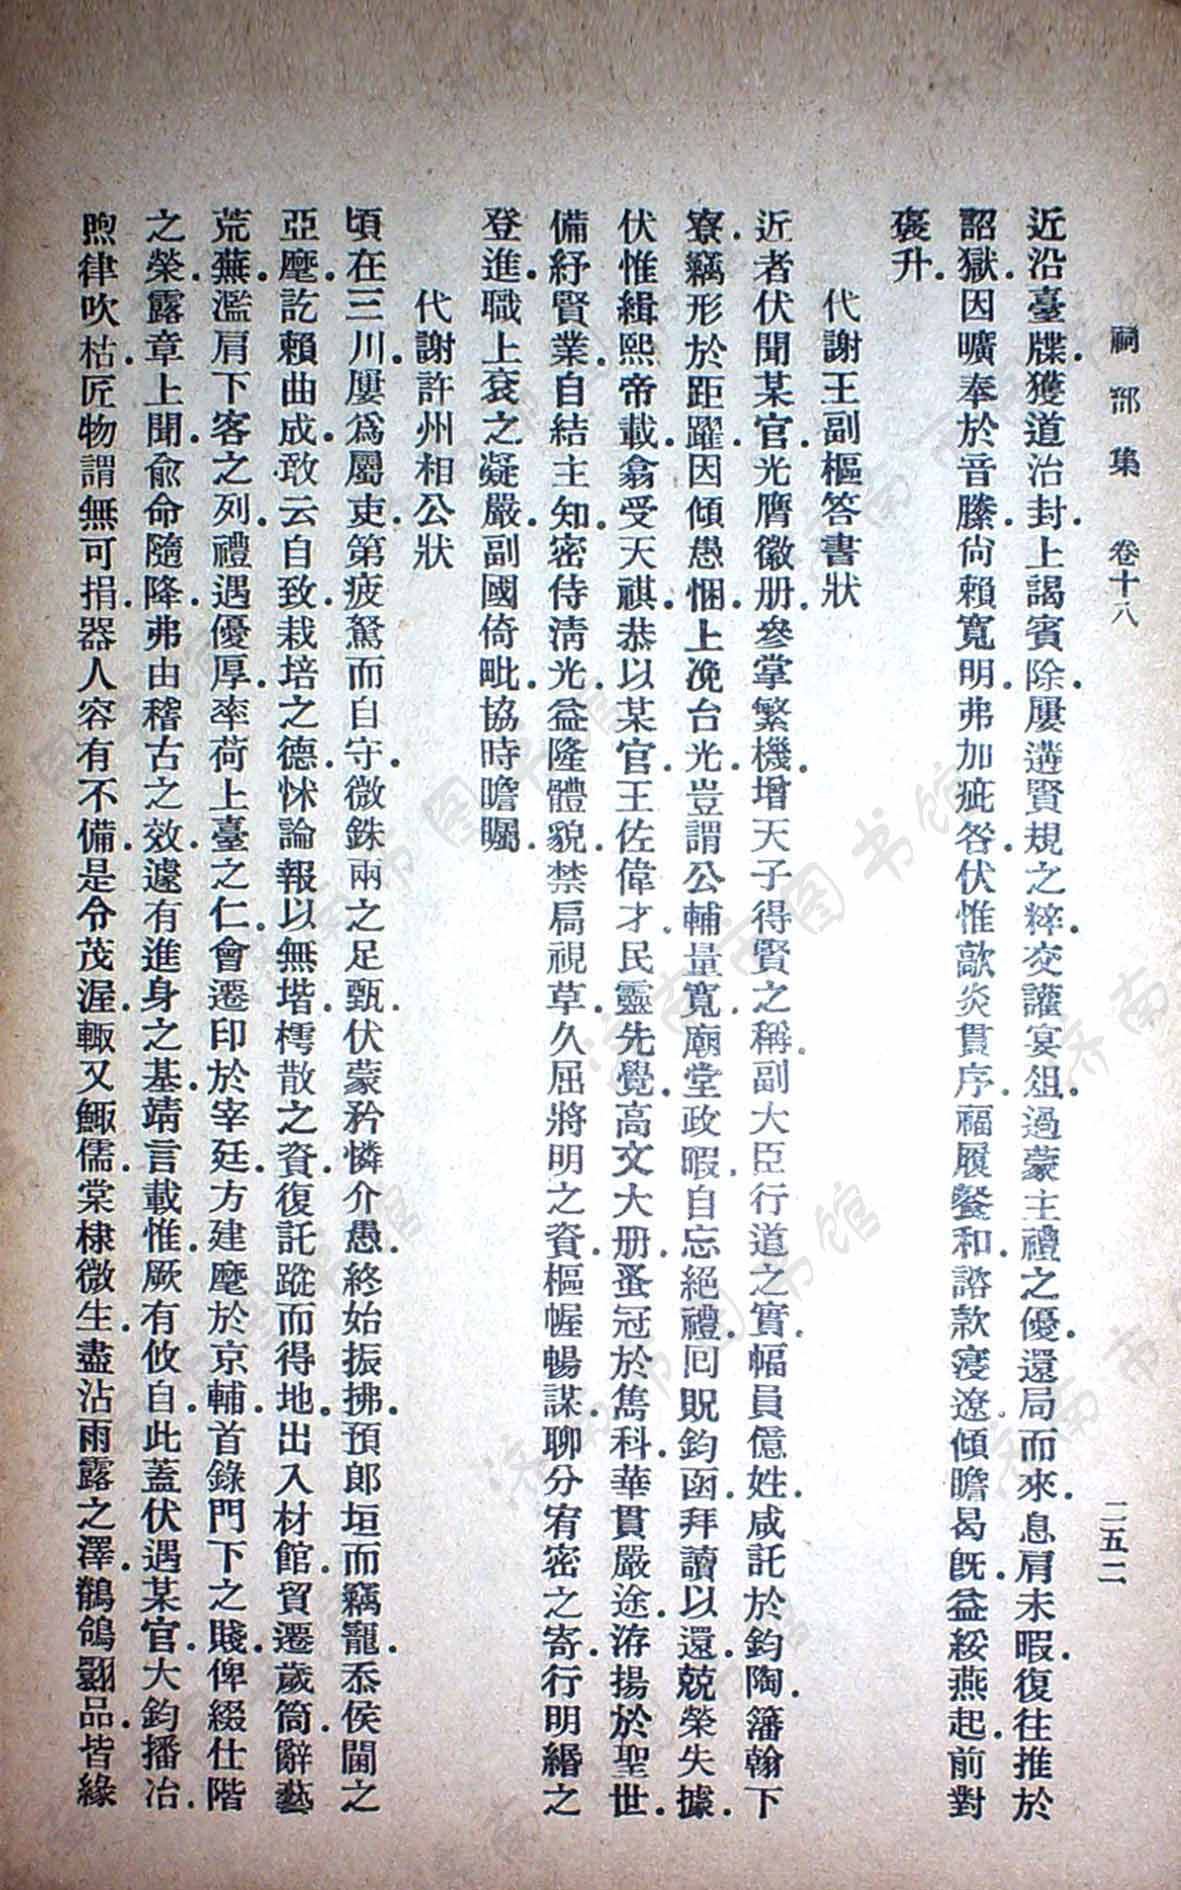 祠部集 卷十八 二五二
近沿臺牒.獲道治封.上謁賓除.屢遘賢規之粹.交讙宴俎.過蒙主禮之優.還局而來.息肩未暇.復往推於
詔獄.因曠奉於音塍.尙賴寬明.弗加疵咎.伏惟歊炎貫序.福履餐和.諮款寖遼.傾瞻曷旣.益綏燕起.前對
褒升.
代謝王副樞答書狀
近者伏聞某官.光膺徽册.參掌繁機.增天子得賢之稱.副大臣行道之實.幅員億姓.咸託於鈞陶.藩翰下
寮.竊形於距躍.因傾愚悃.上凂台光.豈謂公輔量寬.廟堂政暇.自忘絕禮.回貺鈞函.拜讀以還.兢榮失據.
伏惟緝熙帝載.翕受天祺.恭以某官.王佐偉才.民靈先覺.高文大册.蚤冠於雋科.華貫嚴途.洊揚於聖世.
備紓賢業.自結主知.密侍淸光.益隆體貌.禁扃視草.久屈將明之資.樞幄暢謀.聊分宥密之寄.行明緡之
登進.職上袞之凝嚴.副國倚毗.協時瞻矚.
代謝許州相公狀
頃在三川.屢爲屬吏.第疲駑而自守.微銖兩之足甄.伏蒙矜憐介愚.終始振拂.預郎垣而竊寵.忝侯閫之
亞麾.訖賴曲成.敢云自致.栽培之德.怵論報以無堦.樗散之資.復託蹤而得地.出入材館.貿遷歲筒.辭藝
荒蕪.濫肩下客之列.禮遇優厚.率荷上臺之仁.會遷印於宰廷.方建麾於京輔.首錄門下之賤.俾綴仕階
之榮.露章上聞.俞命隨降.弗由稽古之效.遽有進身之基.靖言載惟.厥有攸自.此蓋伏遇某官.大鈞播冶.
煦律吹枯.匠物謂無可捐.器人容有不備.是令茂渥.輙又鯫儒.棠棣微生.盡沾雨露之澤.鶺鴒翾品.皆緣